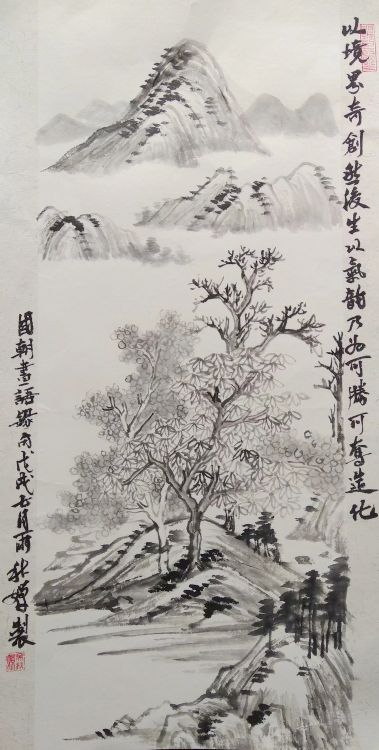 以境界奇創然後生以氣韵乃為可勝可奪造化
國朝畫語録句戊戌七月雨秋製